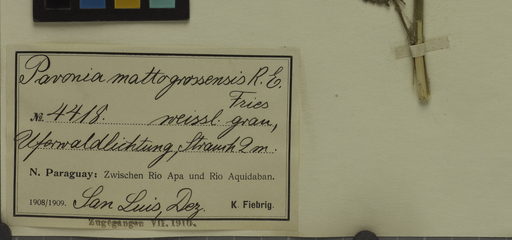 Pavonia mattogrossensis R. E.
Fries
№ 4418. weissl. grau,
Uferwaldlichtung, Strauch 2 m.
N. Paraguay: Zwischen Rio Apa und Rio Aquidaban.
1908/1909. San Luis, Dez. K. Fiebrig.
Zugegangen VII. 1910.